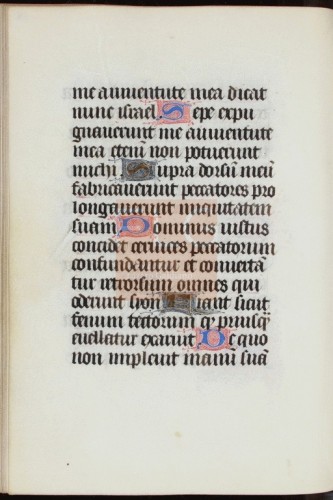 me a iuuentute mea dicat
nunc israel. Sepe expu
gnauerunt me a iuuentute
mea etenim non potuerunt
michi Supra dorsū meū
fabricauerunt peccatores pro
longauerunt iniquitatem
suam Dominus iustus
concidet ceruices peccatorum
confundantur et conuertā
tur retrorsum omnes qui
oderunt syon Fiant sicut
fenum tectorum qƺ priusqȝ
euellatur exaruit De quo
non impleuit manū suā